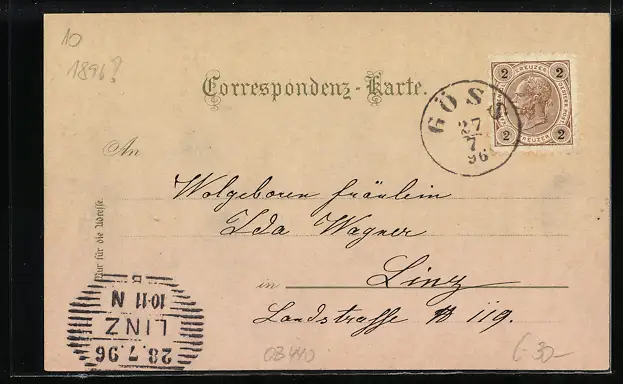 10
1896?
Correspondenz-Karte.
2 KREUZER 2
2 KREUZER 2
GÖSS
27
7
96
An
Nur für die Adresse.
Wolgeboren fräulein
Ida Wagner
in Linz
Landstrasse № 119.
28.7.96
LINZ
10·11 N
B
03440
6.30-